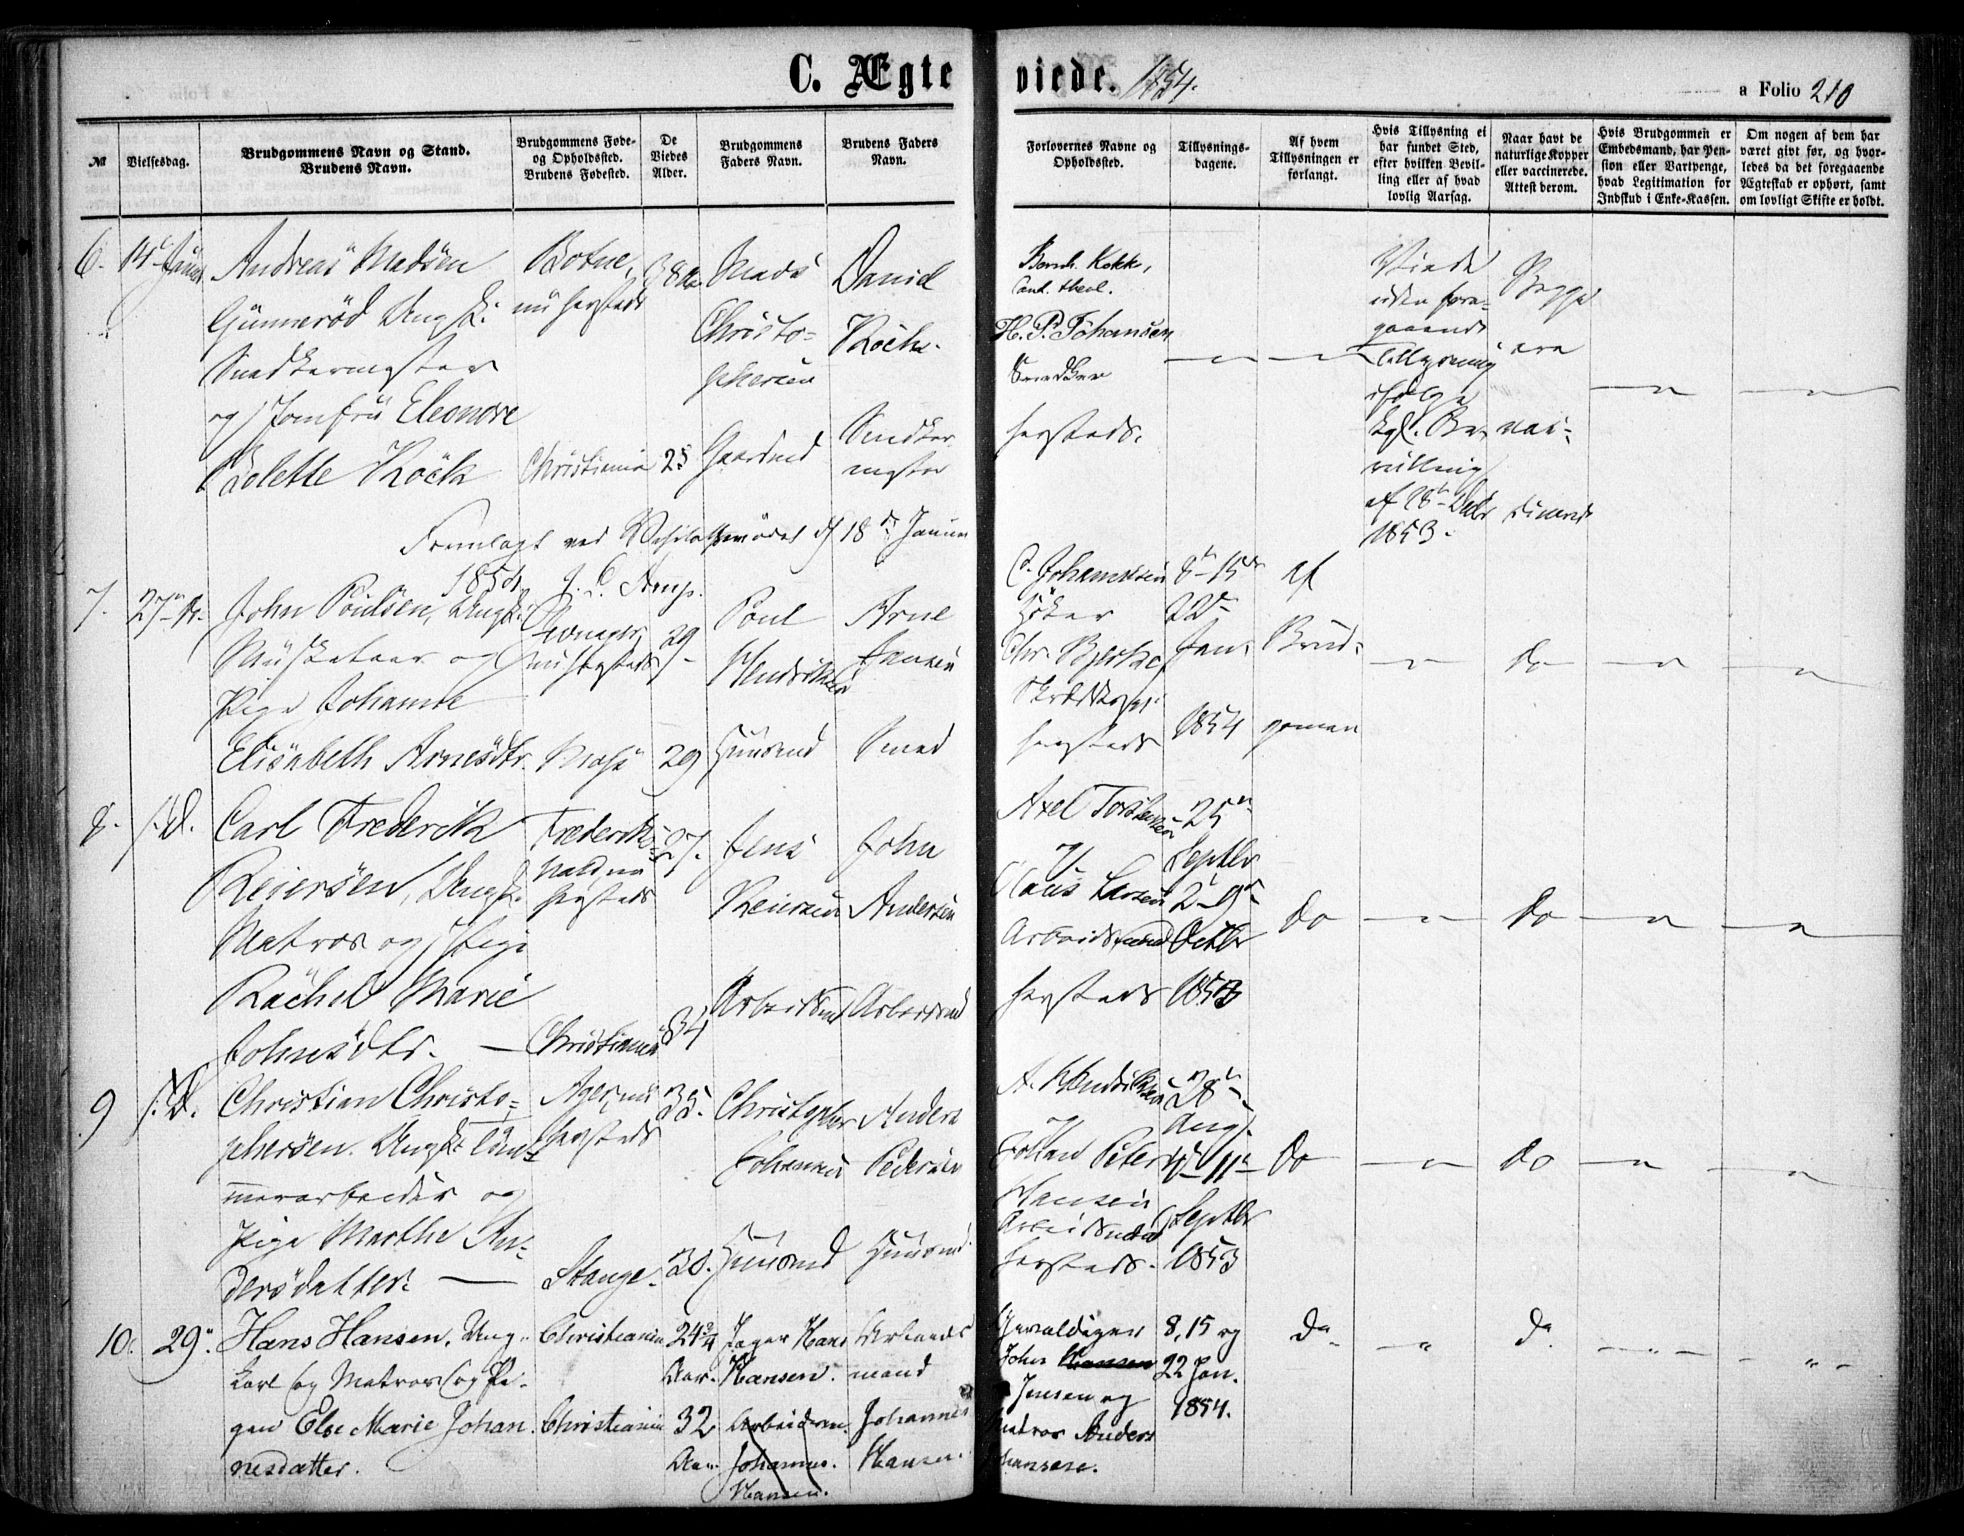 C. Ægte viede. 1854.
a Folio 210
№
Vielsesdag.
Brudgommens Navn og Stand.
Brudens Navn.
Brudgommens Føde-
og Opholdssted.
Brudens Fødested.
De
Viedes
Alder.
Brudgommens
Faders Navn.
Brudens Faders
Navn.
Forlovernes Navne og
Opholdssted.
Tillysnings-
dagene.
Af hvem
Tillysningen er
forlangt.
Hvis Tillysning ei
har fundet Sted,
efter hvilken Bevil-
ling eller af hvad
lovlig Aarsag.
Naar havt de
naturlige Kopper
eller vaccinerede.
Attest derom.
Hvis Brudgommen er
Embedsmand, har Pen-
sion eller Vartpenge,
hvad Legitimation for
Indskud i Enke-Kassen.
Om nogen af dem har
været gift før, og hvor-
ledes da det foregaaende
Ægteskab er ophørt, samt
om lovligt Skifte er holdt.
6.
Andreas Madsen
Gunnerød Ungk:
Snedkermester
og Jomfru Eleonore
Colette Köck
Botne,
nu hersteds
Christiania
38
25
Mads
Christo-
phersen
Gaardmd
David
Köck.
Snedker
mester
Bernh. Kokk,
Cand. theol.
H. P. Johansen
Snedker
hersteds.
Viede
uden fore-
gaaende
Tillysning
ifølge
kgl. Be-
villing
af 28 Decbr
1853.
Begge
ere
vac-
cinerede
Fremlagt ved 18 Januar
1854
7.
27
John Poulsen, Ungk:
Musketeer og
Pige Johanne
Elisabeth Arnesdtr.
nu hersteds
Moss
29
29
Poul
Hendriksen
Huusmd
Arne
Jensen
Smed
C. Johannesen
Høker
hersteds
8 15
22
Jan.
1854
af
Brud-
gomen
do
8.
s. D.
Carl Frederik
Reiersen, Ungk.
Matros og Pige
Rachel Marie
Johnsdtr.
Frederiks-
hald nu
hersteds
Christiania
27.
34
Jens
Reiersen
Arbeidsmd
John
Andersen
Arbeidsmd
Axel Torstensen
og
Claus Larsen
Arbeidsmænd
hersteds
25
Septbr
2 9
Octbr
1853
do
do
9
s. D.
Christian Christo-
phersen. Ungk: Töm-
merarbeider og
Pige Marthe An-
dersdatter.
Ager, nu
hersteds
Stange.
35.
30.
Christopher
Johannesen
Huusmd
Anders
Pedersen
Huusmd.
A. Hendriksen
og
Johan Peter
Hansen
Arbeidsmænd
hersteds.
28
Aug.
4 11
Septbr
1853
do
do
10.
29
Hans Hansen. Ung-
karl og Matros og Pi-
gen Else Marie Johan
nesdatter.
Christiania
Christiania
24 3/4
Aar.
32
Aar.
Jæger Hans
Hansen.
Arbeidsm.
Johannes.
Hansen.
Arbeids
mand
Johannes
Hansen.
John Hansen
Jensen og
Matros Anders
Hansen.
8, 15 og
22 Jan.
1854.
do
do